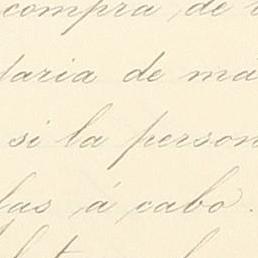 compra de
daria de má
si la person
las á cabo.